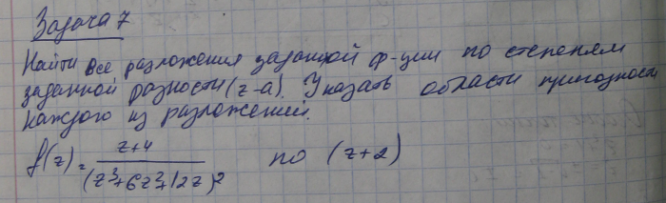 Задача 7
Найти все разложения заданной ф-ции по степеням
заданной разности (z-a). Указать области пригодности
каждого из разложений.
f(z) = z+4 / (z³+6z²+12z)² по (z+2)